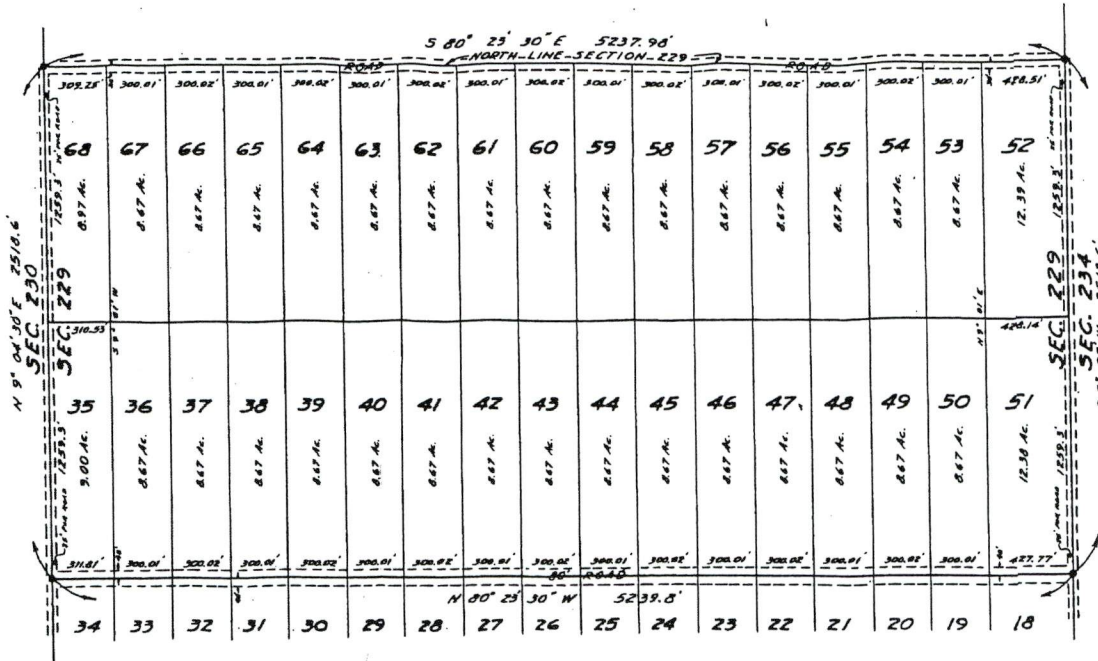 S 80° 23' 30" E 5237.98'
NORTH LINE SECTION 229
ROAD ROAD
309.25' 300.01' 300.02' 300.01' 300.02' 300.01' 300.02' 300.01' 300.02' 300.01' 300.02' 300.01' 300.02' 300.01' 300.02' 300.01' 428.51'
68 67 66 65 64 63 62 61 60 59 58 57 56 55 54 53 52
8.97 Ac. 8.67 Ac. 8.67 Ac. 8.67 Ac. 8.67 Ac. 8.67 Ac. 8.67 Ac. 8.67 Ac. 8.67 Ac. 8.67 Ac. 8.67 Ac. 8.67 Ac. 8.67 Ac. 8.67 Ac. 8.67 Ac. 8.67 Ac. 12.39 Ac.
1259.3' 1259.3'
N 9° 04' 30" E 2518.6'
SEC. 230
SEC. 229
S 9° 01' W
N 9° 01' E
SEC. 229
SEC. 234
310.53' 428.14'
35 36 37 38 39 40 41 42 43 44 45 46 47 48 49 50 51
9.00 Ac. 8.67 Ac. 8.67 Ac. 8.67 Ac. 8.67 Ac. 8.67 Ac. 8.67 Ac. 8.67 Ac. 8.67 Ac. 8.67 Ac. 8.67 Ac. 8.67 Ac. 8.67 Ac. 8.67 Ac. 8.67 Ac. 8.67 Ac. 12.38 Ac.
1259.3' 1259.3'
311.81' 300.01' 300.02' 300.01' 300.02' 300.01' 300.02' 300.01' 300.02' 300.01' 300.02' 300.01' 300.02' 300.01' 300.02' 300.01' 427.77'
80' ROAD
N 80° 23' 30" W 5239.8'
34 33 32 31 30 29 28 27 26 25 24 23 22 21 20 19 18